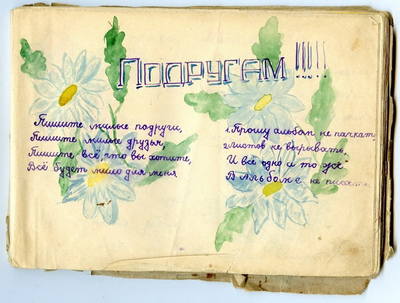 Подругам !!!!
Пишите милые подруги,
Пишите милые друзья,
Пишите всё, что вы хотите,
Всё будет мило для меня
1. Прошу альбом не пачкат
2 листов не вырывать,
И всё одно и то же
В альбоме не писать